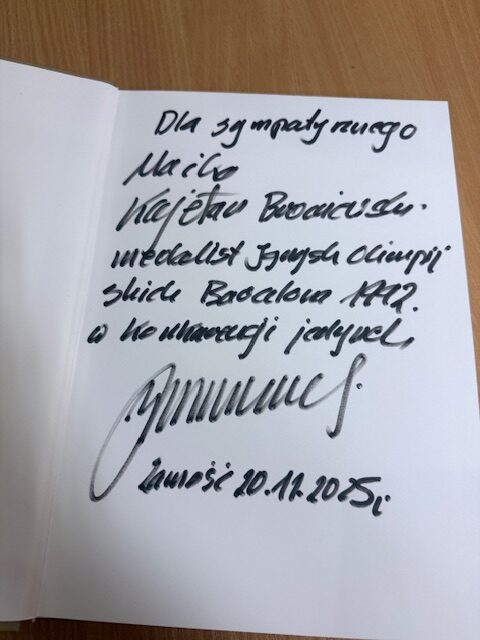 Dla sympatycznego
Kajetan Broniewski.
medalist Igrzysk Olimpij
skich Barcelona 1992.
w konkurencji jedynek
Zamość 20.11.2025r.